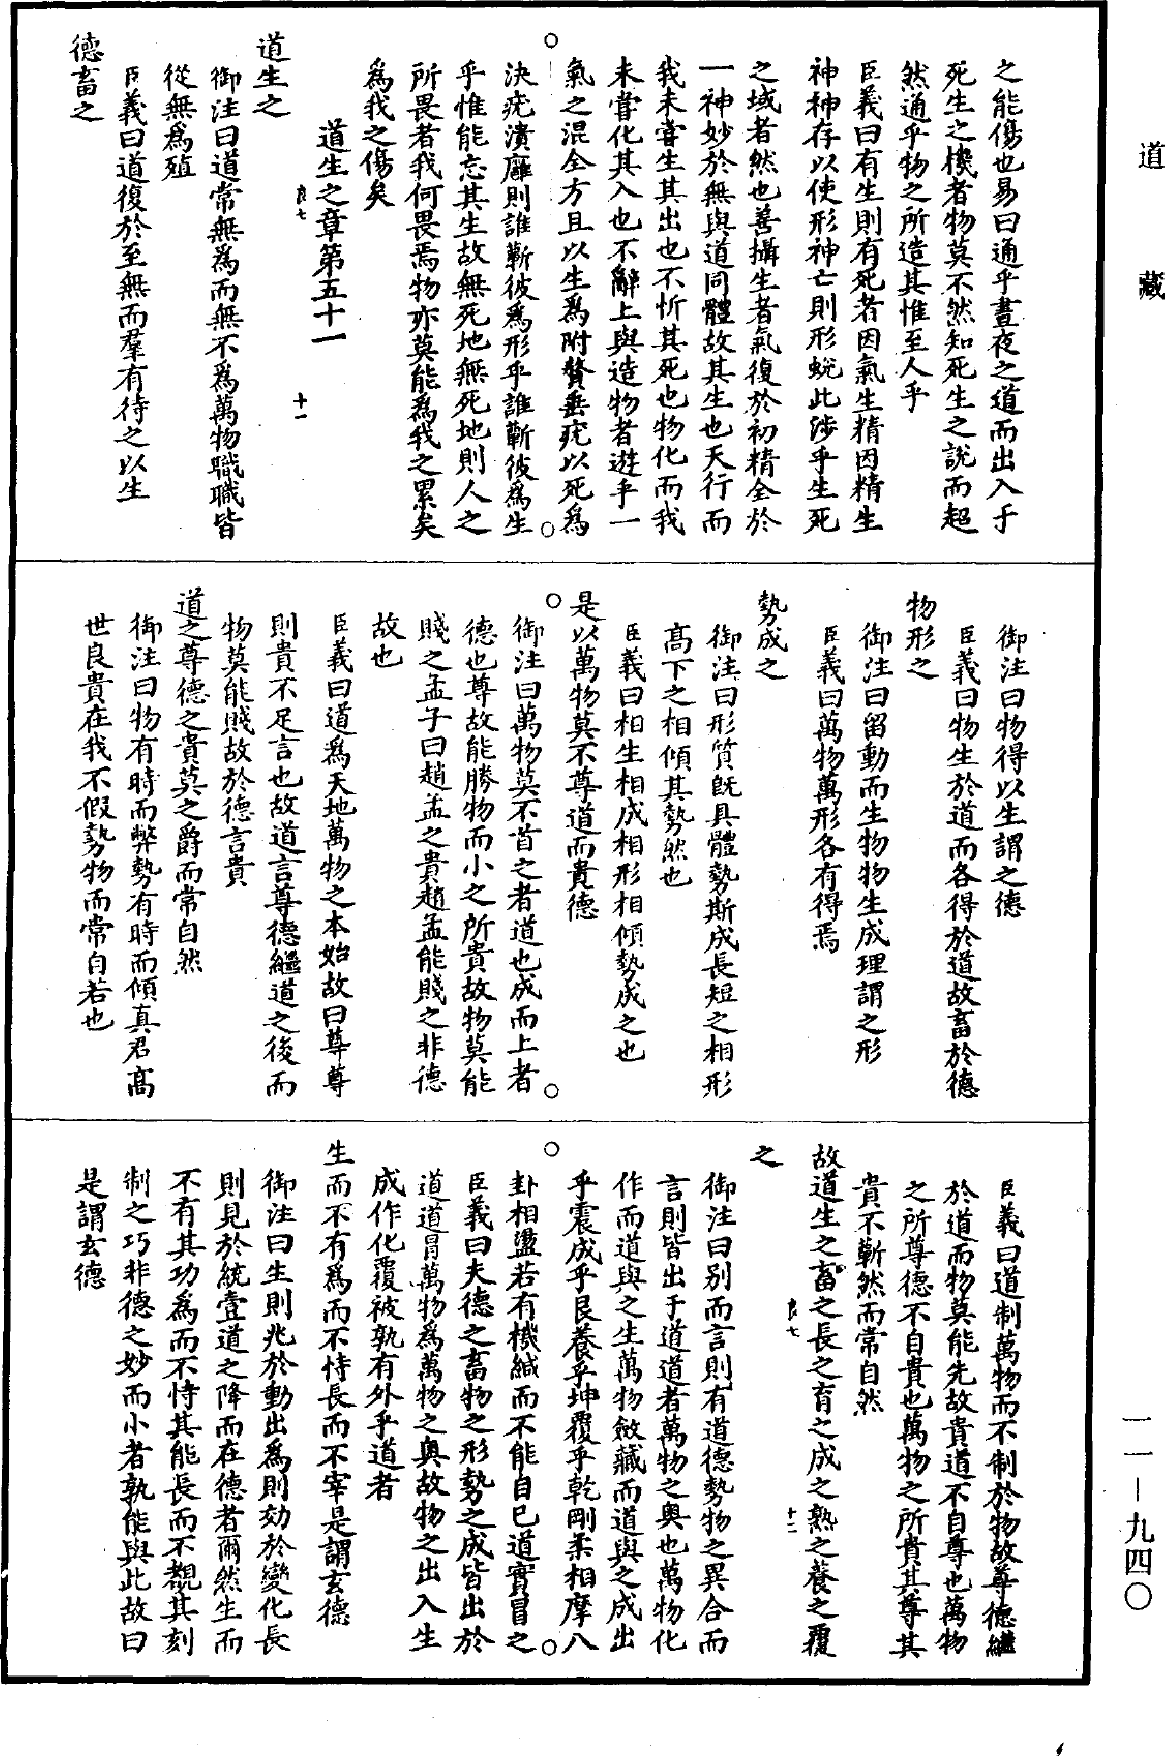 道藏
之能傷也易曰通乎晝夜之道而出入于
死生之機者物莫不然知死生之說而超
然通乎物之所造其惟至人乎
臣義曰有生則有死者因氣生精因精生
神神存以使形神亡則形蛻此涉乎生死
之域者然也善攝生者氣復於初精全於
一神妙於無與道同體故其生也天行而
我未嘗生其出也不忻其死也物化而我
未嘗化其入也不辭上與造物者遊乎一
氣之混全方且以生為附贅垂疣以死為
決疣潰癰則誰蘄彼為形乎誰蘄彼為生
乎惟能忘其生故無死地無死地則人之
所畏者我何畏焉物亦莫能為我之累矣
為我之傷矣
道生之章第五十一
良七
十一
道生之
御注曰道常無為而無不為萬物職職皆
從無為殖
臣義曰道復於至無而羣有待之以生
德畜之
御注曰物得以生謂之德
臣義曰物生於道而各得於道故畜於德
物形之
御注曰留動而生物物生成理謂之形
臣義曰萬物萬形各有得焉
勢成之
御注曰形質既具體勢斯成長短之相形
高下之相傾其勢然也
臣義曰相生相成相形相傾勢成之也
是以萬物莫不尊道而貴德
御注曰萬物莫不首之者道也成而上者
德也尊故能勝物而小之所貴故物莫能
賤之孟子曰趙孟之貴趙孟能賤之非德
故也
臣義曰道為天地萬物之本始故曰尊尊
則貴不足言也故道言尊德繼道之後而
物莫能賤故於德言貴
道之尊德之貴莫之爵而常自然
御注曰物有時而弊勢有時而傾真君高
世良貴在我不假勢物而常自若也
臣義曰道制萬物而不制於物故尊德繼
於道而物莫能先故貴道不自尊也萬物
之所尊德不自貴也萬物之所貴其尊其
貴不蘄然而常自然
故道生之畜之長之育之成之熟之養之覆
良七
十二
之
御注曰別而言則有道德勢物之異合而
言則皆出于道道者萬物之奧也萬物化
作而道與之生萬物斂藏而道與之成出
乎震成乎艮養乎坤覆乎乾剛柔相摩八
卦相盪若有機緘而不能自已道實冒之
臣義曰夫德之畜物之形勢之成皆出於
道道冒萬物為萬物之奧故物之出入生
成作化覆被孰有外乎道者
生而不有為而不恃長而不宰是謂玄德
御注曰生則兆於動出為則効於變化長
則見於統壹道之降而在德者爾然生而
不有其功為而不恃其能長而不覩其刻
制之巧非德之妙而小者孰能與此故曰
是謂玄德
一一—九四〇